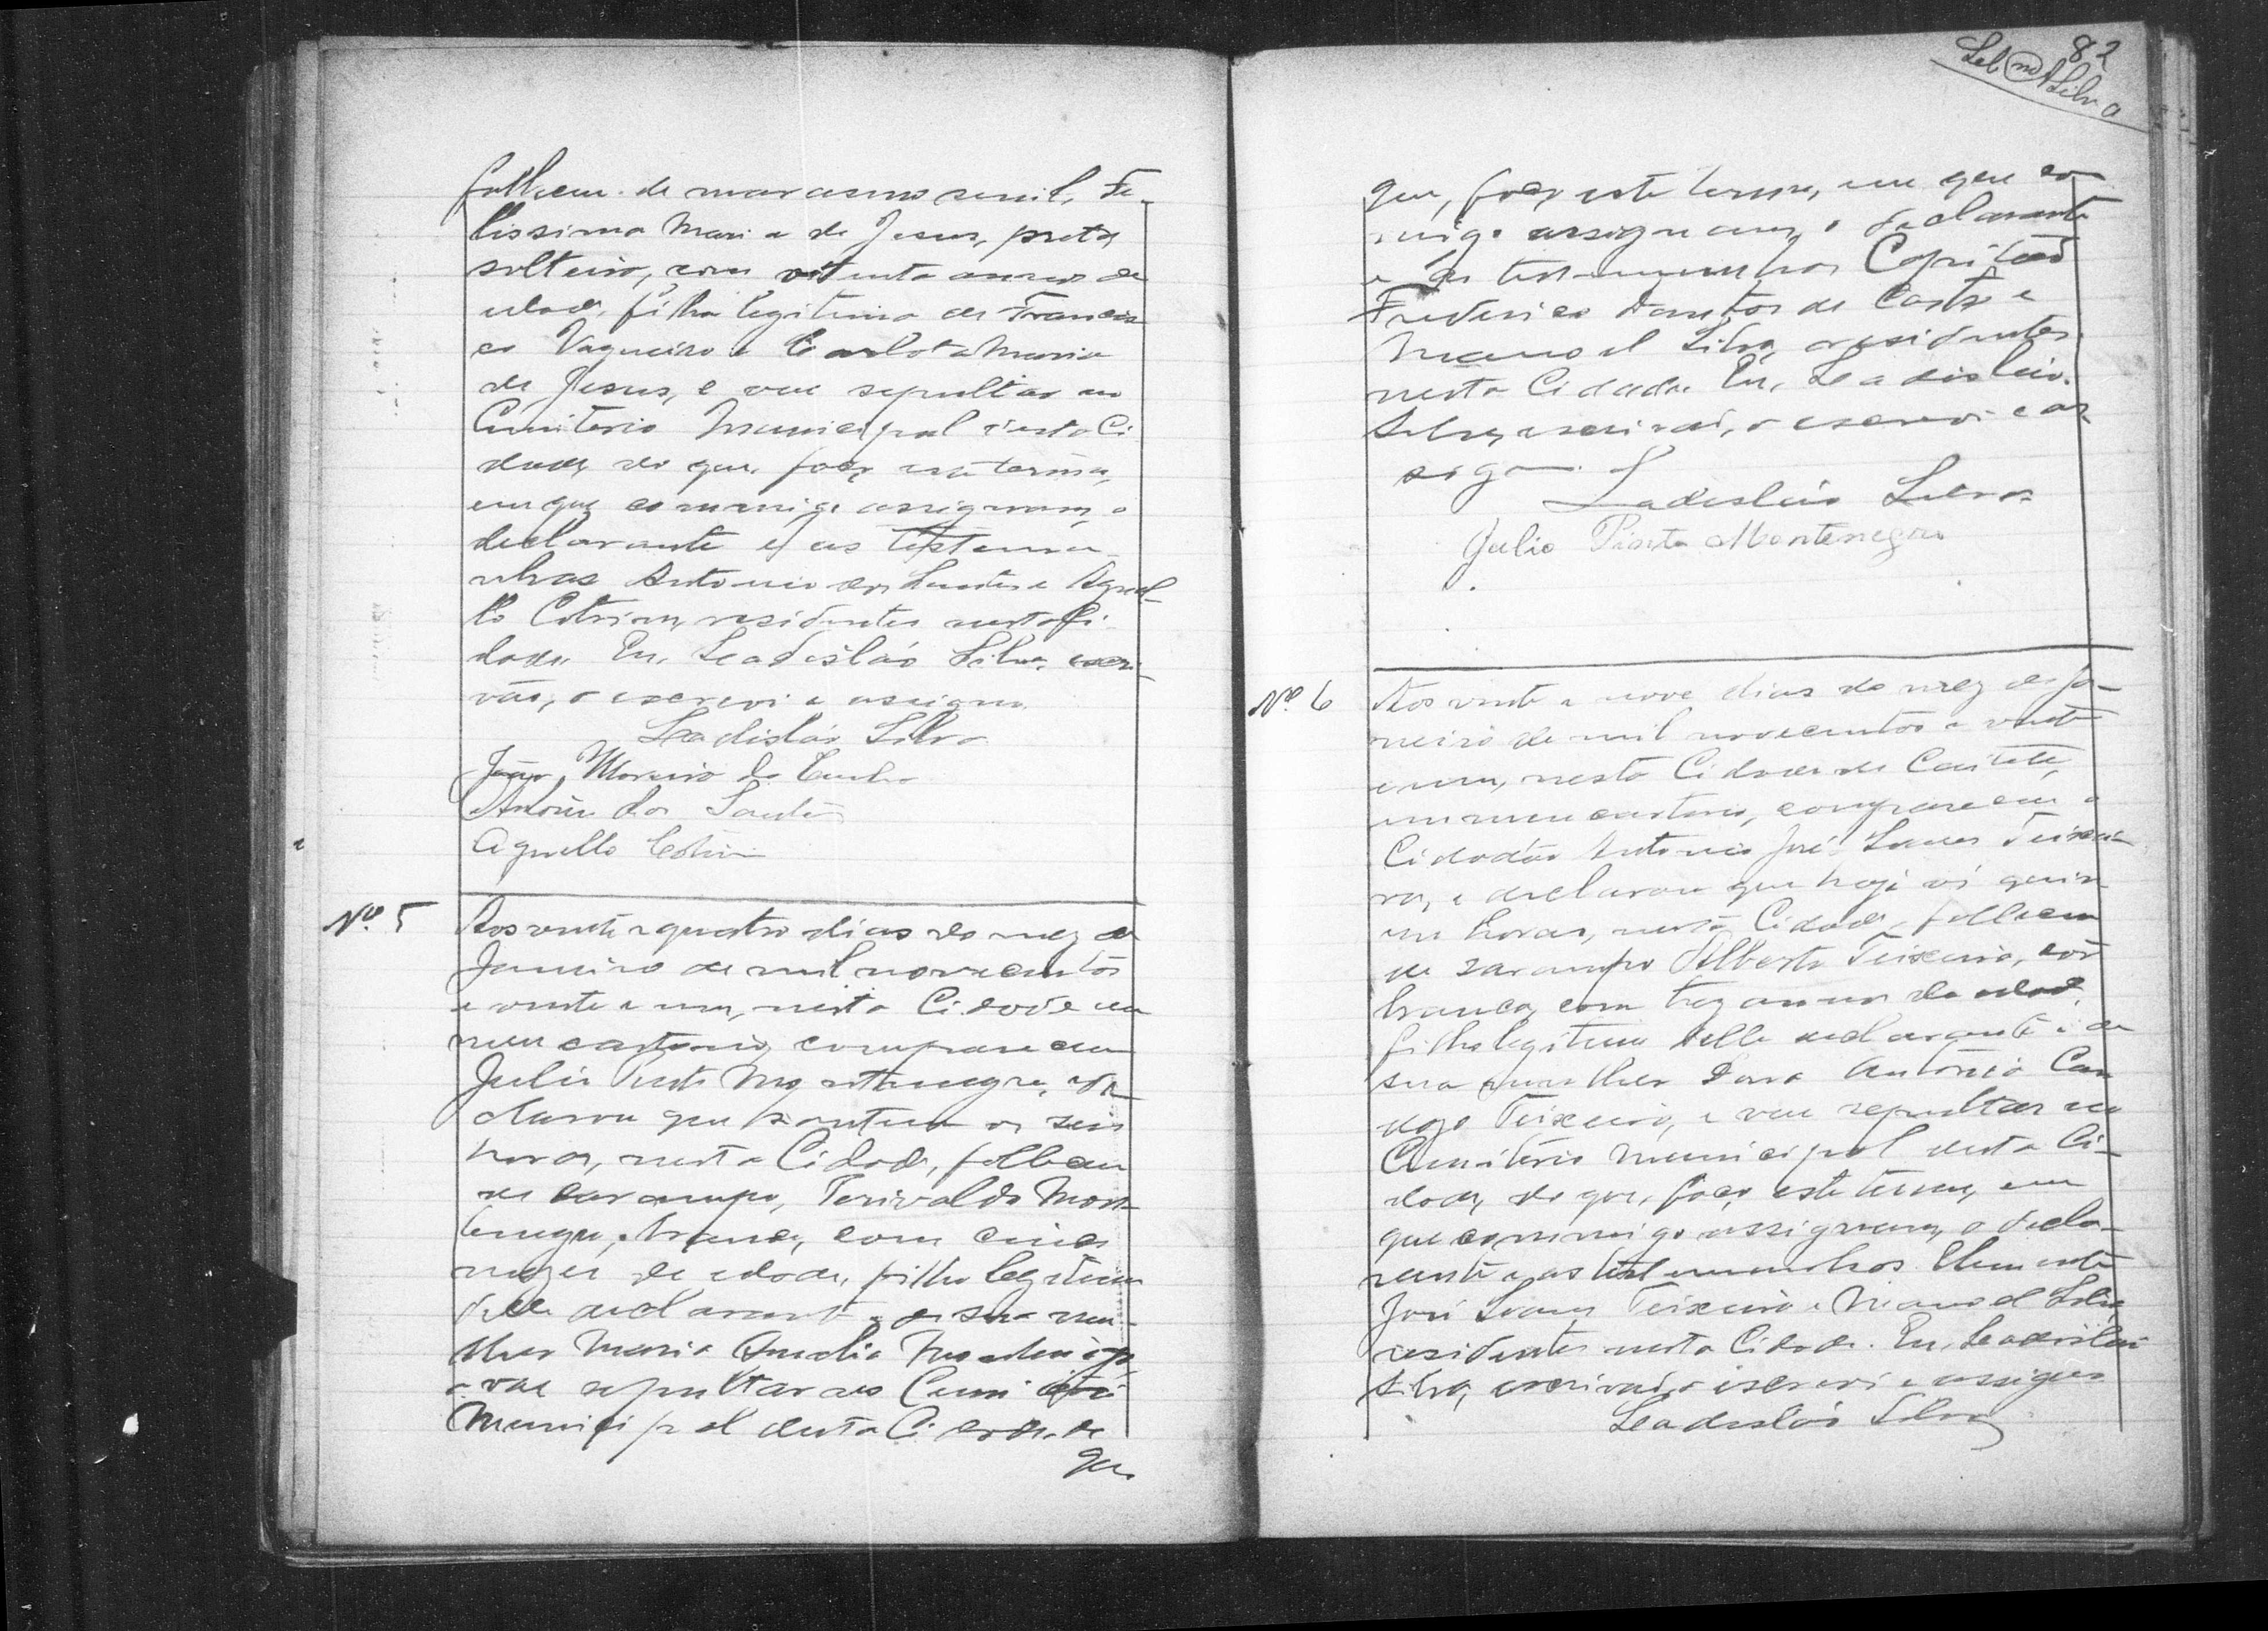 falleceu de marasmo senil, Fe-
lissima Maria de Jesus, preta
solteira, com oitenta annos de
edade, filha legitima de Francis-
co Vaqueiro e Carlota Maria
de Jesus, e vae sepultar no
Cemiterio Municipal desta Ci
dade, do que, faço este termo,
em que commigo assignam, o
declarante e as testemu-
nhas Antonio dos Santos e Agnel-
lo Cotrim, residentes nesta Ci-
dade. Eu, Ladisláo Silva, escri-
vão, o escrevi e assigno
Ladisláo Silva
João Moreira da Cunha
Antonio dos Santos
Agnello Cotrim
Nº 5
Aos vinte e quatro dias do mez de
Janeiro de mil novecentos
e vinte e um, nesta Cidade em
meu cartorio, compareceu
Julio Pinto Montenegro, e de-
clarou que hontem as seis
horas, nesta Cidade, falleceu
de sarampo, Montenegro, branco, com cinco
mezes de edade, filho legitimo
delle declarante e de sua mu-
lher Maria Amelia Montenegro,
e vae sepultar no Cemiterio
Municipal desta Cidade, do
que
82
Silva
que, faço este termo, em que com
migo assignam, o declarante
e as testemunhas Capitão
Frederico de Castro e
Manoel Silva, residentes
nesta Cidade. Eu, Ladisláo
Silva, escrivão, o escrevi e as
signo.
Ladisláo Silva
Julio Pinto Montenegro
Nº 6
Aos vinte e nove dias do mez de Ja-
neiro de mil novecentos e vinte
e um, nesta Cidade de Caiteté,
em meu cartorio, compareceu o
Cidadão Antonio José Soares Teixei-
ra, e declarou que hoje as quin
ze horas, nesta Cidade, falleceu
de sarampo Alberto Teixeira, côr
branca, com trez annos de edade,
filho legitimo delle declarante e de
sua mulher Dona Antonia Car
dozo Teixeira, e vae sepultar no
Cemiterio Municipal desta Ci-
dade, do que, faço este termo, em
que commigo assignam, o decla-
rante e as testemunhas Clemente
José Soares Teixeira e Manoel Silva,
residentes nesta Cidade. Eu, Ladisláo
Silva, escrivão, o escrevi e assigno
Ladisláo Silva